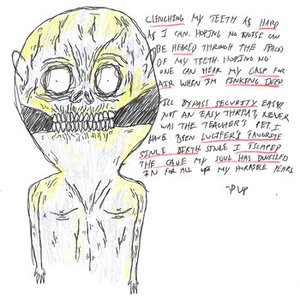 CLENCHING MY TEETH AS HARD
AS I CAN. HOPING NO NOISE CAN
BE HEARD THROUGH THE SPACES
OF MY TEETH. HOPING NO
ONE CAN HEAR MY GASP FOR
AIR WHEN I'M SINKING DEEP
I'LL BYPASS SECURITY EASY,
NOT AN EASY THREAT, NEVER
WAS THE TEACHER'S PET. I
HAVE BEEN LUCIFER'S FAVORITE
SINCE BIRTH SINCE I ESCAPED
THE CAVE MY SOUL HAS DWELLED
IN FOR ALL OF MY HORRIBLE YEARS.